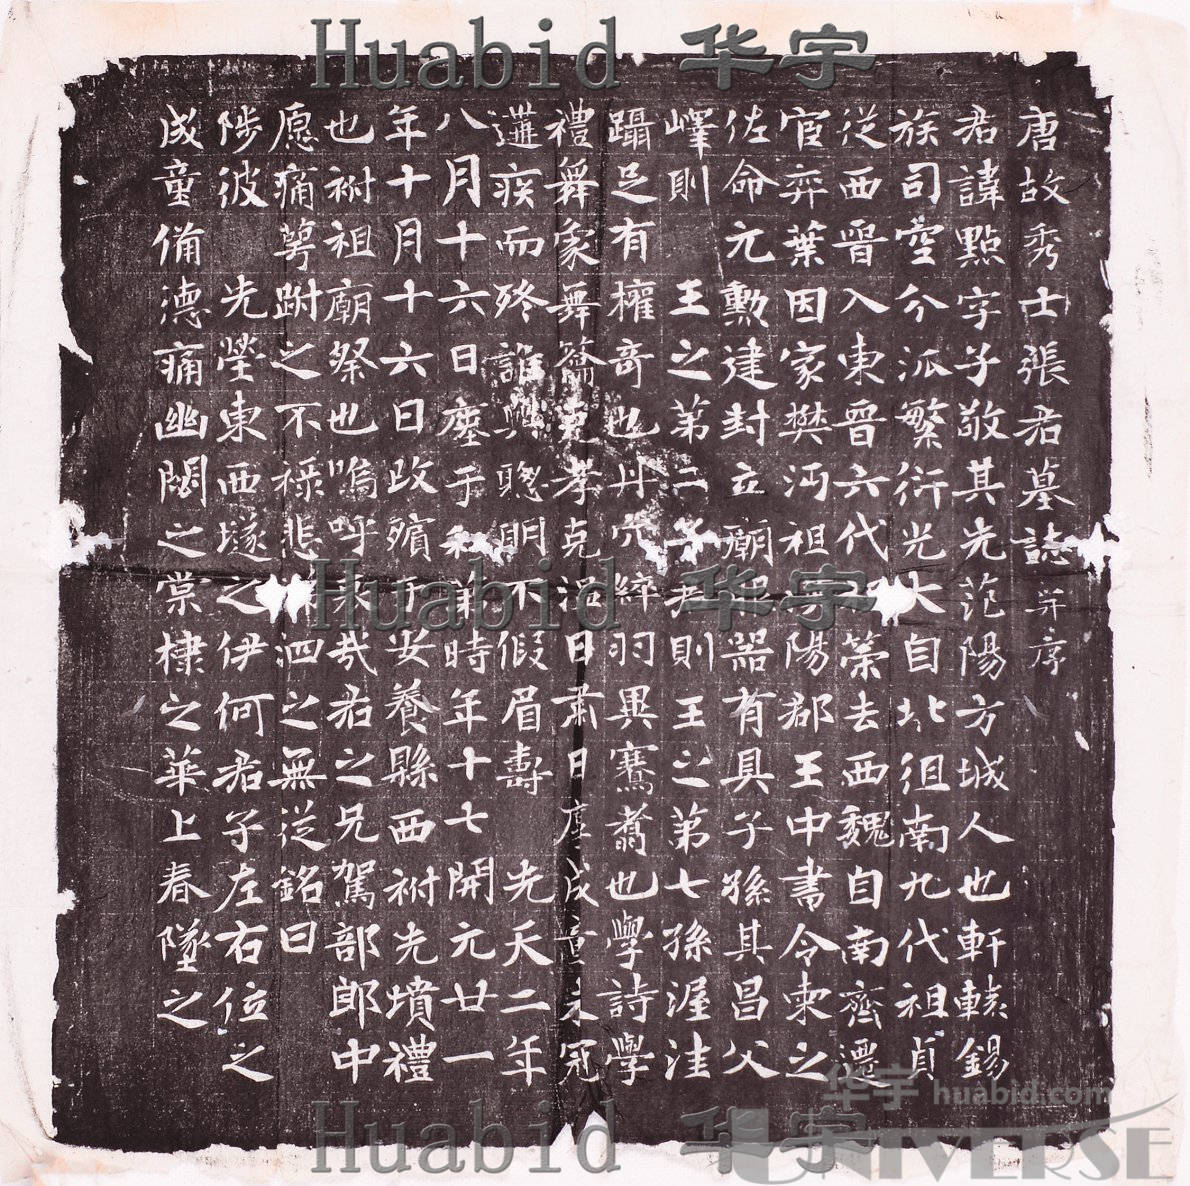 唐故秀士張君墓誌并序
君諱點字子敬其先范陽方城人也軒轅錫
族司空分派繁衍光大自北徂南九代祖貞
從西晉入東晉六代祖策去西魏自南齊遷
宦弈葉因家樊沔祖陽郡王中書令柬之
佐命元勲建封立廟器有具子孫其昌父
嶧則 王之第二子君則王之第七孫渥洼
躡足有權奇也丹穴綷羽異騫翥也學詩學
禮舞象舞籥克孝克溫日肅日成童未冠
遘疾而終誰與聰明不假眉壽 先天二年
八月十六日于私第時年十七開元廿一
年十月十六日改殯于安養縣西祔先墳禮
也祔祖廟祭也嗚呼哀哉君之兄駕部郎中
愿痛萼跗之不祿悲涕泗之無從銘曰
陟彼 先塋東西墜之伊何君子左右位之
成童備德痛幽閟之棠棣之華上春墜之
Huabid 华宇
Huabid 华宇
Huabid 华宇
华宇 huabid.com
UNIVERSE